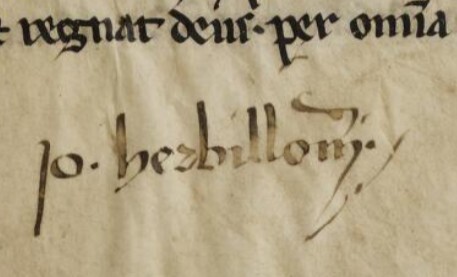 t regnat deus. per om̄a
Jo. herbillom̄.